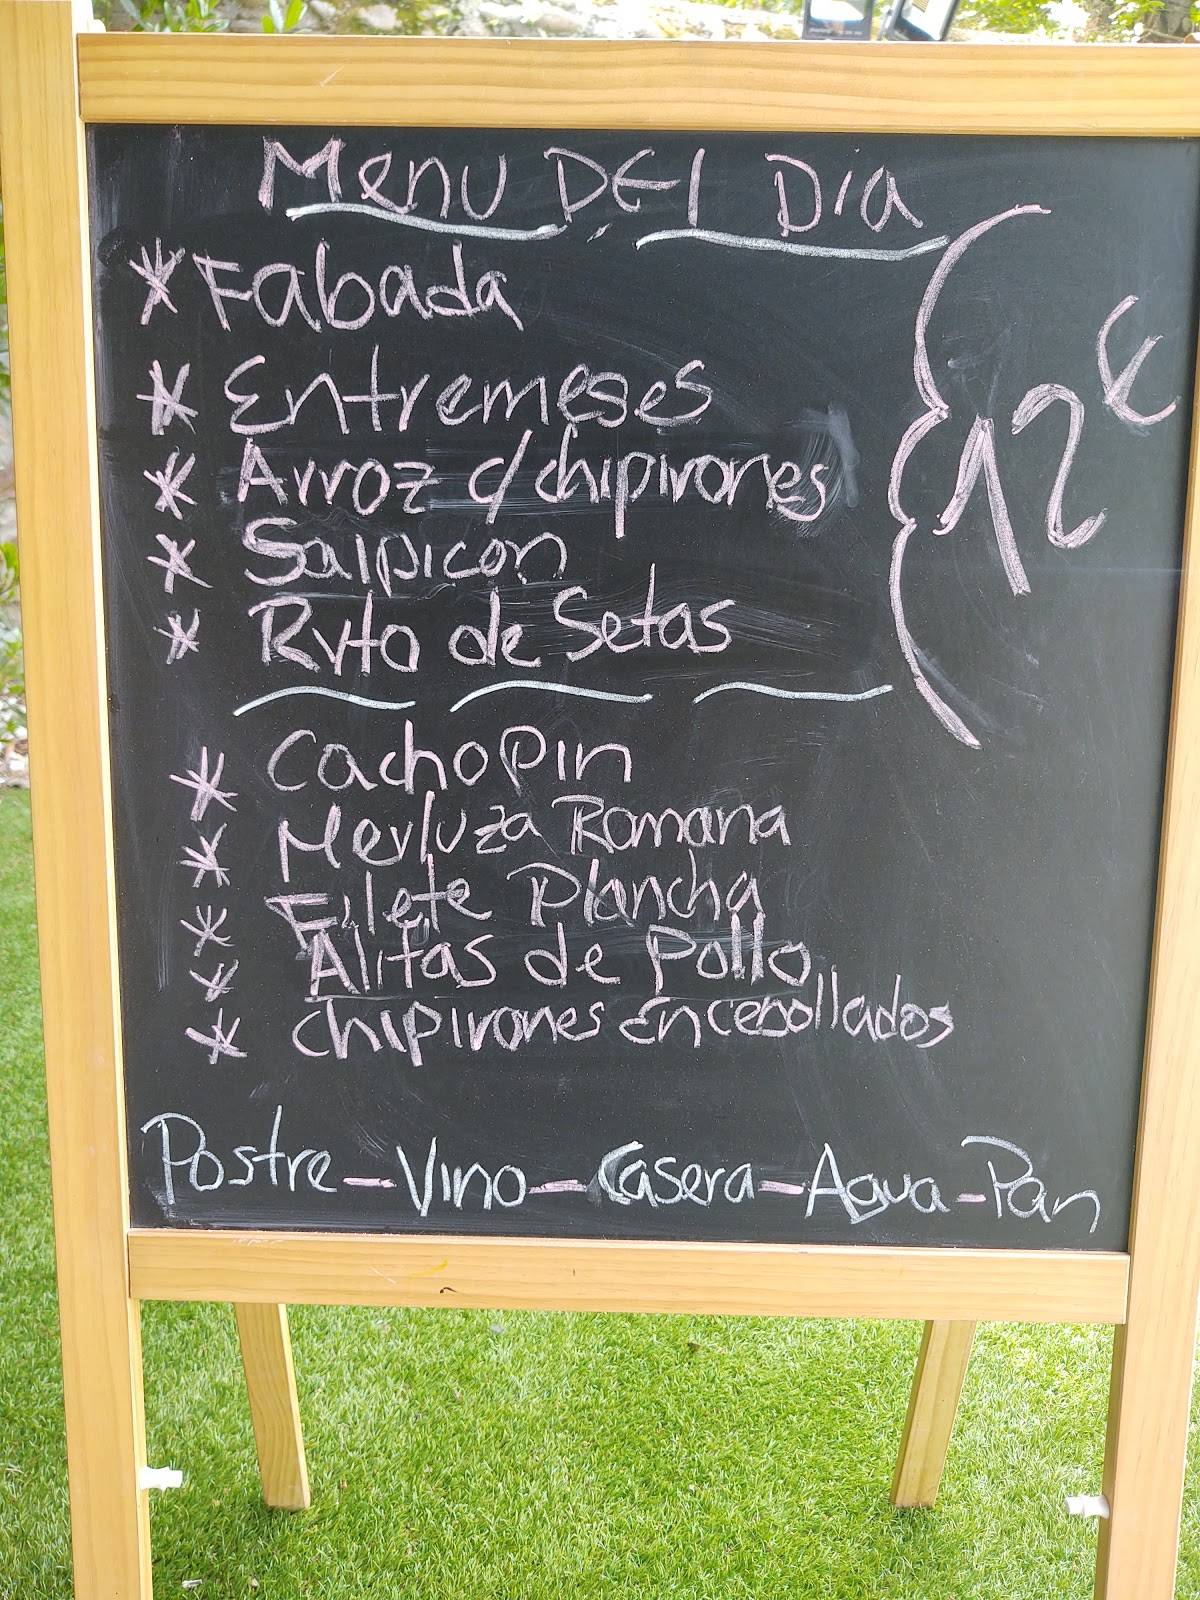 Menu DEl Dia
* Fabada
* Entremeses
* Arroz c/chipirones
* Salpicon
* Rvto de Setas
12€
* Cachopin
* Merluza Romana
* Filete Plancha
* Alitas de Pollo
* Chipirones Encebollados
Postre-Vino-Casera-Agua-Pan